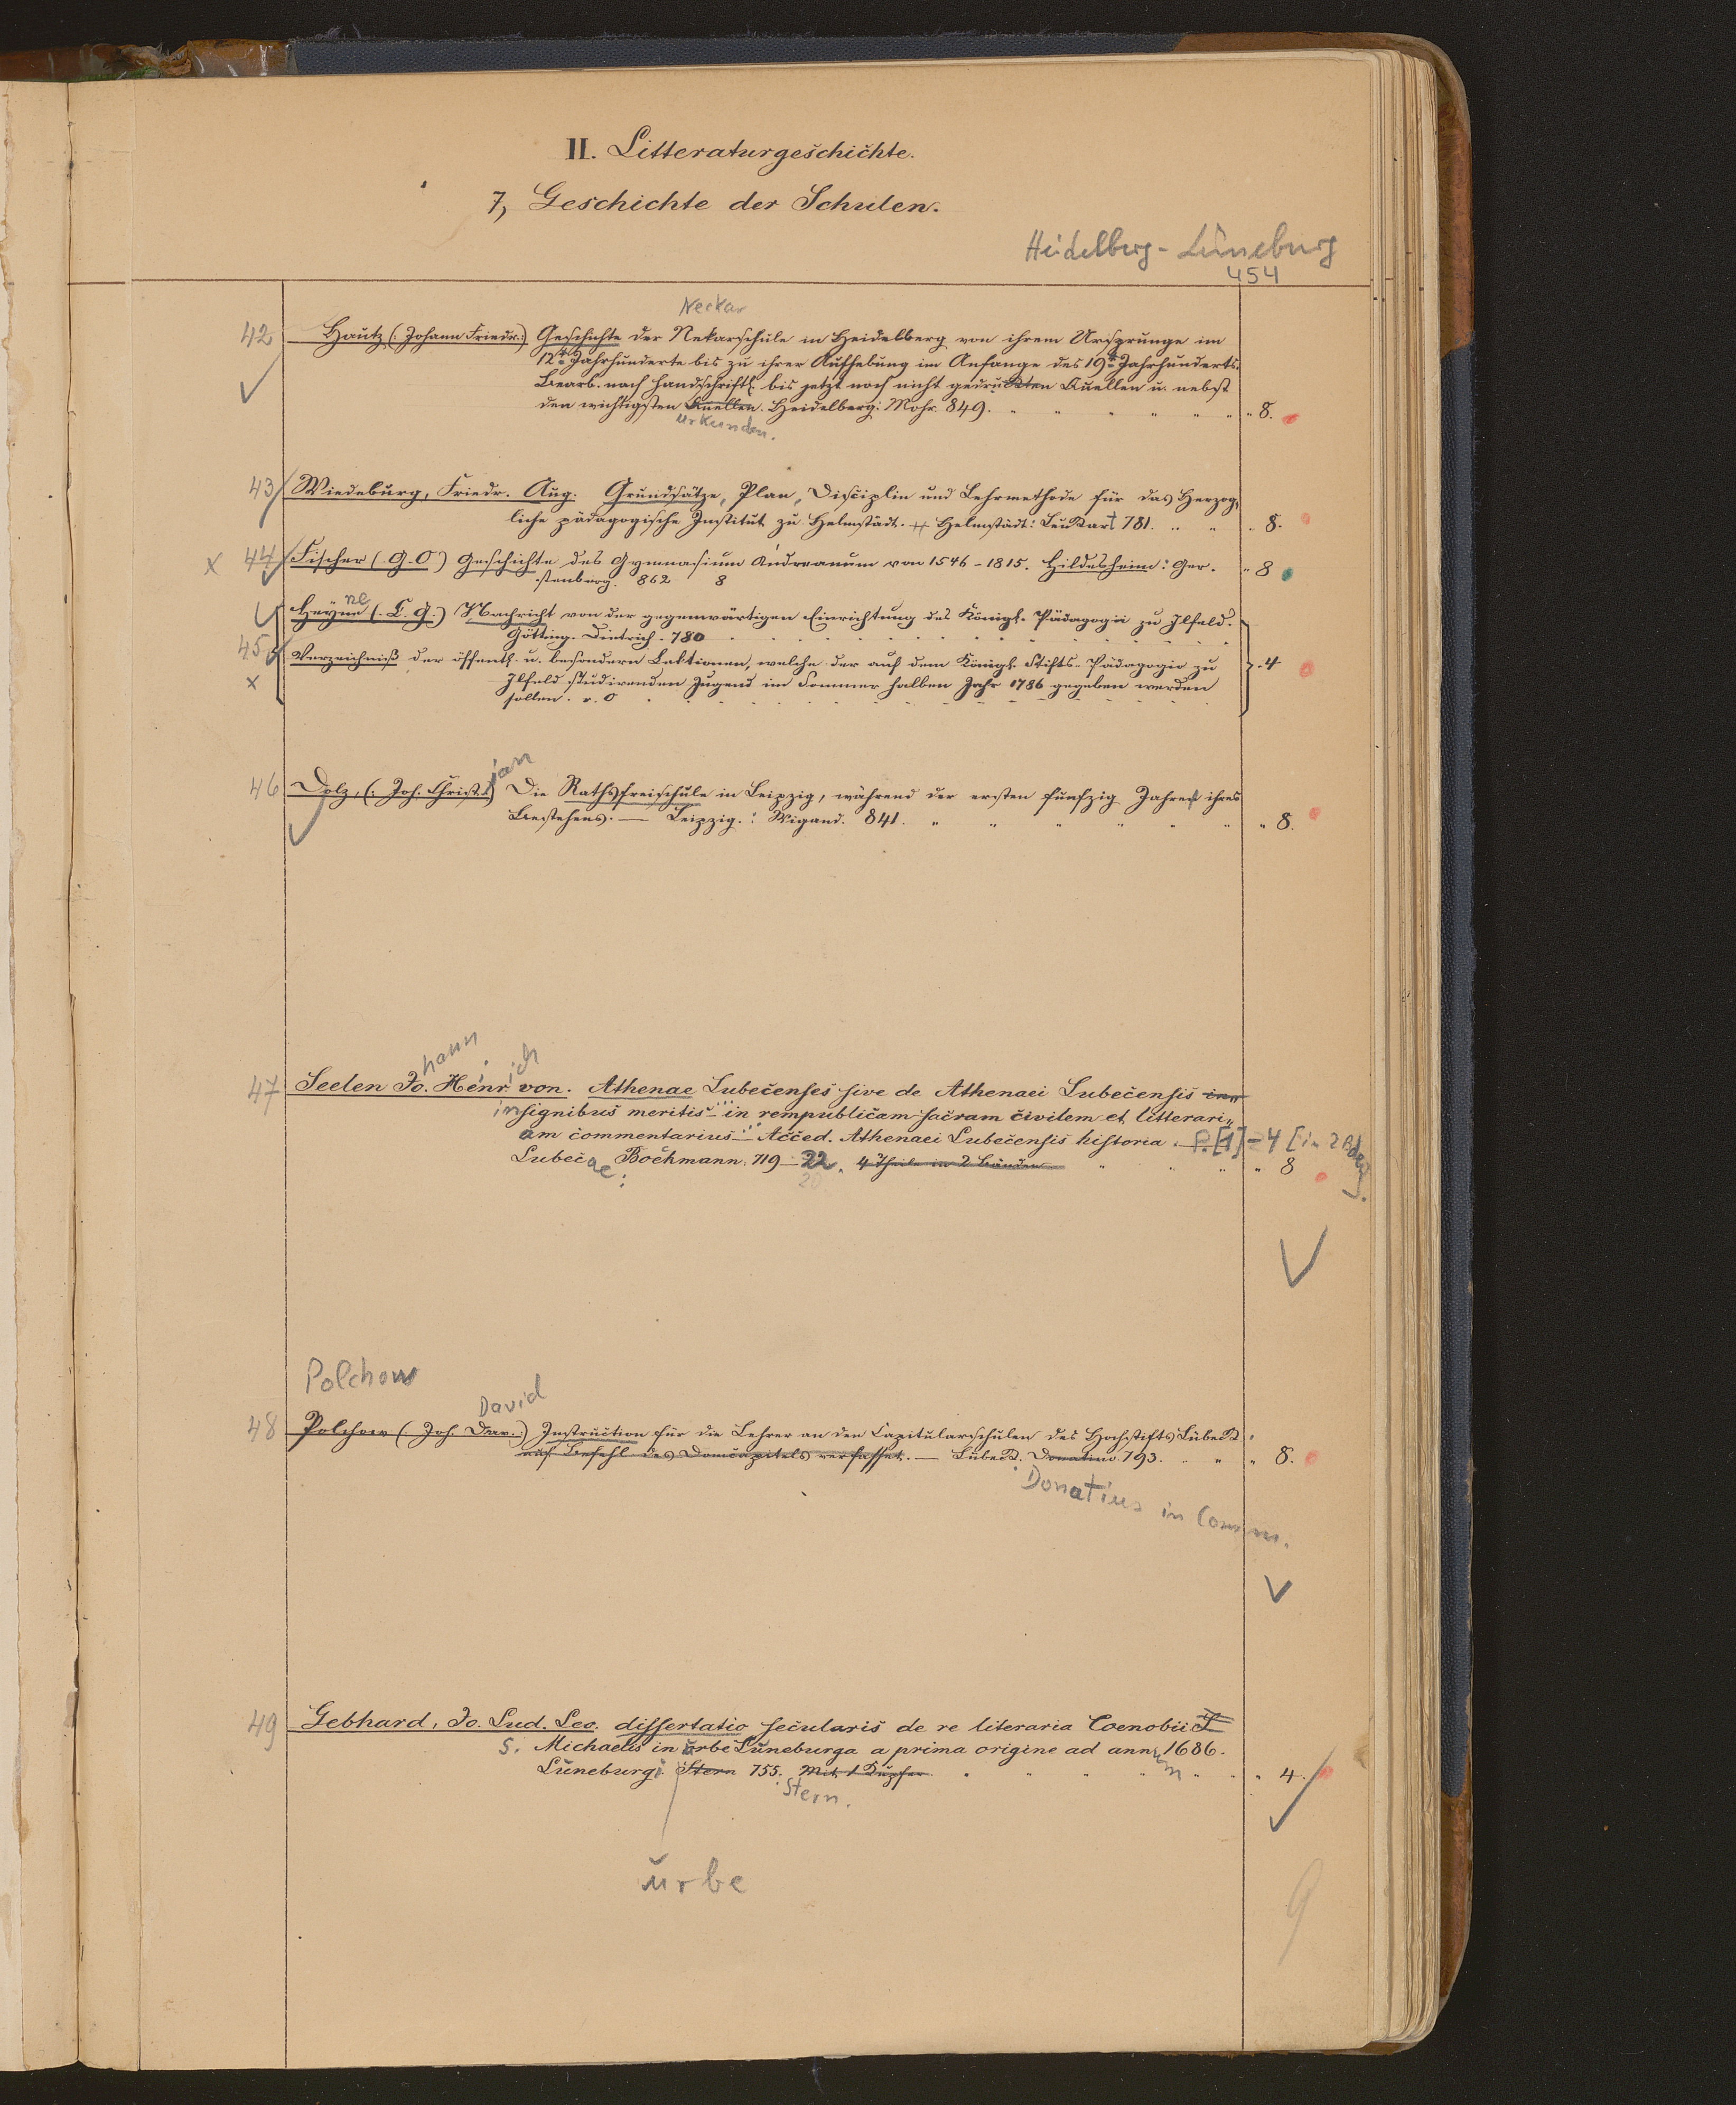 II. Litteraturgeschichte.
7, Geschichte der Schulen.
Heidelberg - Lüneburg
454
Neckar
42 Hautz (: Johann Friedr.:) Geschichte der Nekarschule in Heidelberg von ihrem Ursprunge im
12ten Jahrhunderte bis zu ihrer Aufhebung im Anfange des 19ten Jahrhunderts.
Bearb. nach handschriftl. bis jetzt noch nicht gedruckten Quellen u. nebst
den wichtigsten Quellen. Heidelberg: Mohr. 849. " 8.
Urkunden.
43 Wiedeburg, Friedr. Aug. Grundsätze, Plan, Disciplin und Lehrmethode für das Herzog,
liche pädagogische Institut zu Helmstädt. Helmstädt: Leukart 781. " 8.
x 44 Fischer (. G. O) Geschichte des Gymnasium Andreanum von 1546 - 1815. Hildesheim: Ger.
stenberg. 862 8 " 8
ne
Heyne (. C. G.) Nachricht von der gegenwärtigen Einrichtung des Königl. Pädagogii zu Ilfeld.
Götting. Dietrich. 780
45 Verzeichniß der öffentl. u. besondern Lektionen, welche der auf dem Königl. Stifts-Pädagogio zu
x Ilfeld studirenden Jugend im Sommer halben Jahr 1786 gegeben werden
sollen. s. O 4
ian
46 Dolz, (: Joh. Christ.:) Die Rathsfreischule in Leipzig, während der ersten funfzig Jahre ihres
Bestehens. — Leipzig.: Wigand. 841. " 8.
hann ich
47 Seelen Jo. Henr. von. Athenae Lubecenses sive de Athenaei Lubecensis in„
insignibus meritis in rempublicam sacram civilem et litterari„
am commentarius Acced. Athenaei Lubecensis historia. P. [1] - 4 [in 2 Bden].
Lubecae: Bockmann. 719 - 22. 4 Theile in 2 Bänden " 8
20
Polchow
David
48 Polchow (: Joh. Dav.:) Instruction für die Lehrer an den Capitularschulen des Hochstifts Lübeck
auf Befehl des Domcapitels verfasset. — Lübeck. Donatino 793. " 8.
Donatius in Comm.
49 Gebhard, Jo. Lud. Lev. dissertatio secularis de re literaria Coenobii S
S. Michaelis in urbe Luneburga a prima origine ad ann 1686.
um
Lüneburg: Stern 755. Mit 1 Kupfer " 4.
Stern.
urbe
9